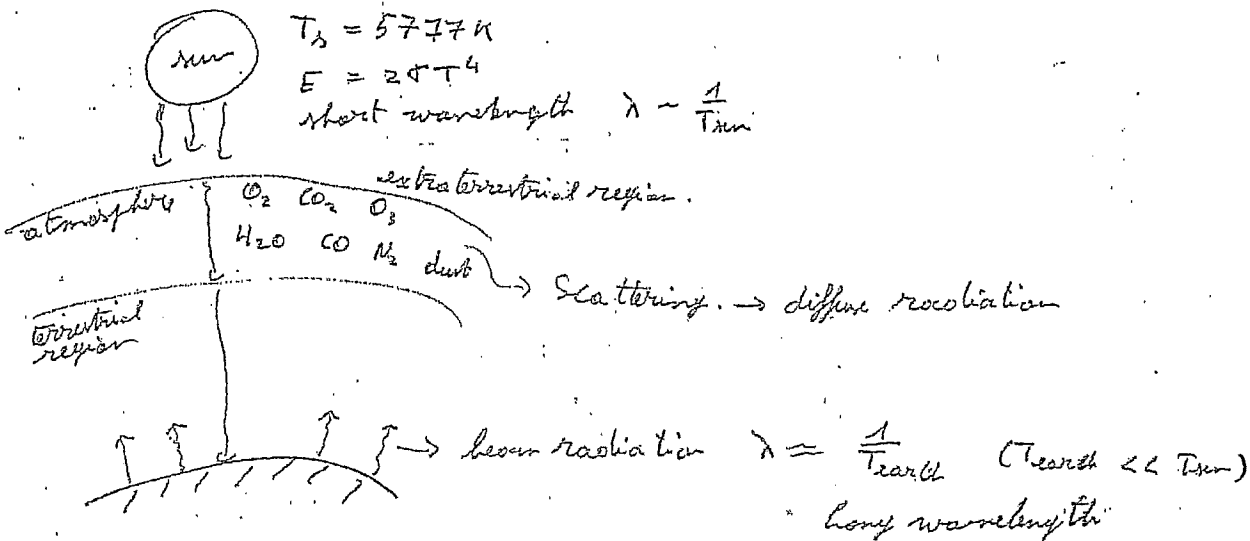 sun
Ts = 5777K
E = εσT⁴
short wavelength λ ~ 1/Tsun
extraterrestrial region.
atmosphere O2 CO2 O3
H2O CO N2 dust → Scattering. → diffuse radiation
terrestrial region
→ beam radiation λ ≃ 1/Tearth (Tearth << Tsun)
Long wavelength